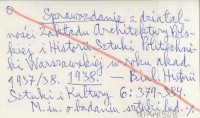 Sprawozdanie z dział-
ności Zakładu Architektury Pols-
kiej i Historii Sztuki, Politechni-
ki Warszawskiej w roku akad.
1937/38. 1938. — Biul. Historii
Sztuki i Kultury 6: 374-384.
M. in. o badaniu sztuki lud.